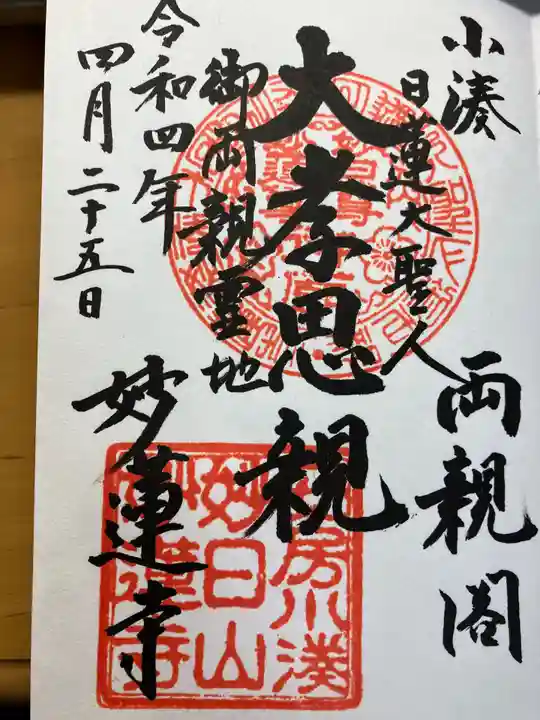 小湊
両親閣
日蓮大聖人
大孝思親
御両親霊地
令和四年
四月二十五日
妙蓮寺
房小湊
妙日山
妙蓮寺